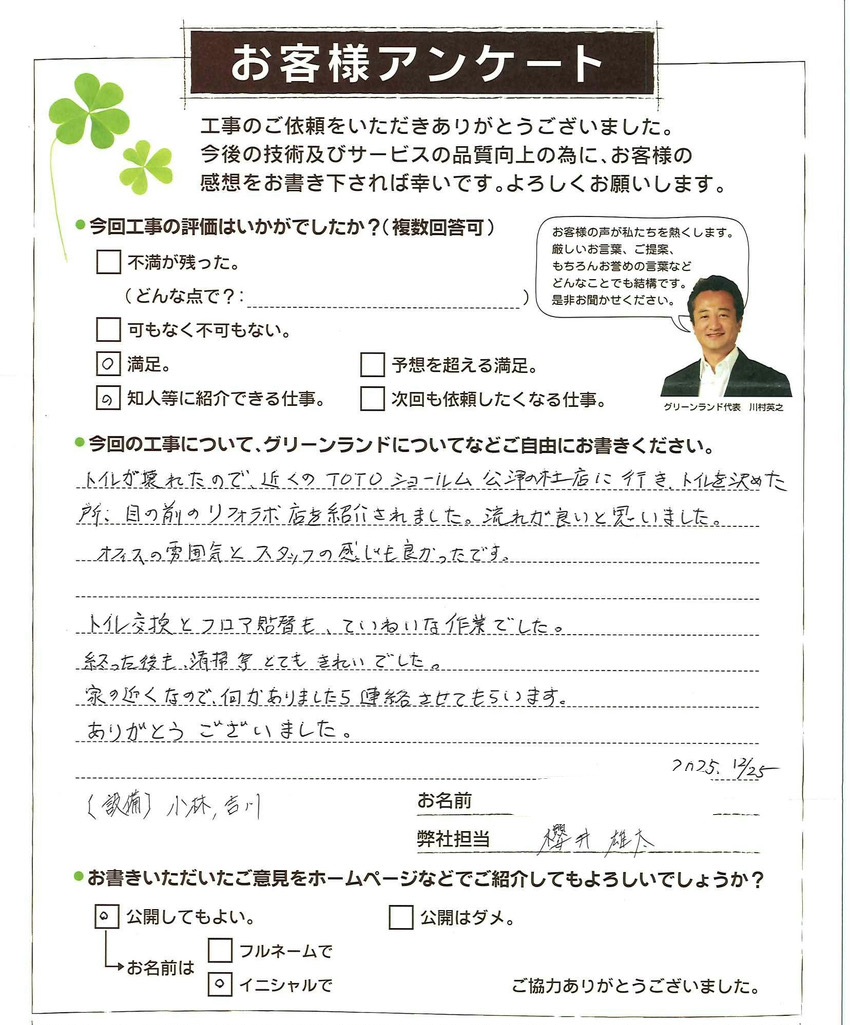 お客様アンケート
工事のご依頼をいただきありがとうございました。
今後の技術及びサービスの品質向上の為に、お客様の
感想をお書き下されば幸いです。よろしくお願いします。
●今回工事の評価はいかがでしたか？（複数回答可）
お客様の声が私たちを熱くします。
厳しいお言葉、ご提案、
もちろんお誉めの言葉など
どんなことでも結構です。
是非お聞かせください。
不満が残った。
（どんな点で？： ）
可もなく不可もない。
○ 満足。 予想を超える満足。
○ 知人等に紹介できる仕事。 次回も依頼したくなる仕事。
グリーンランド代表 川村英之
●今回の工事について、グリーンランドについてなどご自由にお書きください。
トイレが壊れたので、近くのTOTOショールム 公津の杜店に行き、トイレを決めた
所、目の前のリフォラボ店を紹介されました。流れが良いと思いました。
オフィスの雰囲気とスタッフの感じも良かったです。
トイレ交換とフロア貼替も、ていねいな作業でした。
終った後も、清掃等とてもきれいでした。
家の近くなので、何かありましたら連絡させてもらいます。
ありがとうございました。
2025. 12/25
〔設備〕小林, 吉川
お名前
弊社担当 櫻井 雄太
●お書きいただいたご意見をホームページなどでご紹介してもよろしいでしょうか？
○ 公開してもよい。 公開はダメ。
お名前は
フルネームで
○ イニシャルで
ご協力ありがとうございました。